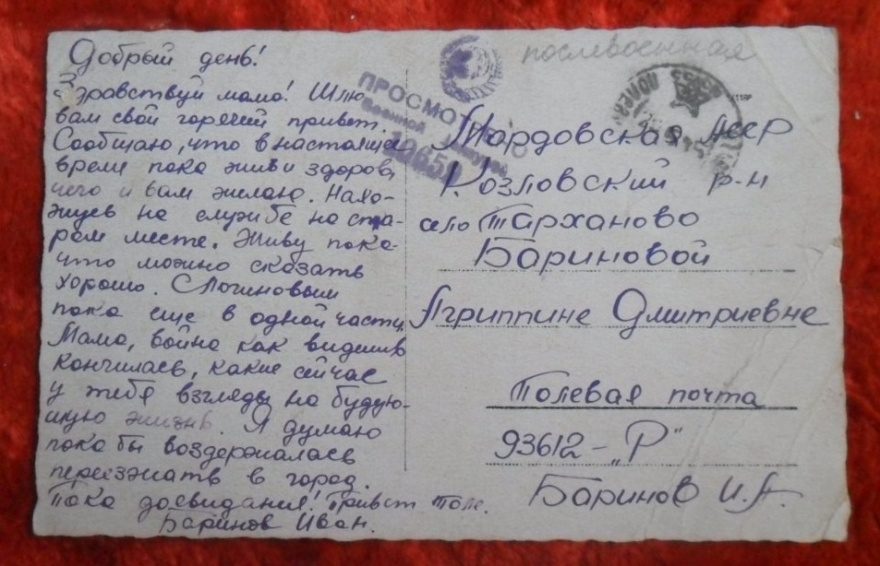 Добрый день!
Здравствуй мама! Шлю
вам свой горячий привет.
Сообщаю, что в настоящее
время пока жив и здоров,
чего и вам желаю. Нахо-
жусь на службе на ста-
ром месте. Живу пока-
что можно сказать
хорошо. С Логиновым
пока еще в одной части.
Мама, война как видишь
кончилась, какие сейчас
у тебя взгляды на будую-
щую жизнь. Я думаю
пока бы воздержалась
переезжать в город.
Пока досвидания! Привет Толе.
Баринов Иван.
послевоенная
ПРОСМОТРЕНО
Военной Цензурой
Мордовская АССР
Козловский р-н
село Тарханово
Бариновой
Агриппине Дмитриевне
Полевая почта
93612-„Р"
Баринов И.А.